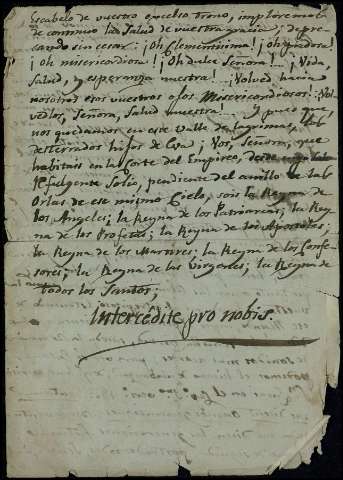 Escabelo de vuestro excelso trono, imploremos
de continuo la salud de vuestra gracia; depre-
cando sin cesar: ¡Oh Clementisima! ¡Oh piadosa!
¡Oh misericordiosa! ¡Oh dulce Señora!.. ¡Vida,
Salud, y esperanza nuestra!.. ¡Volved hacia
nosotros esos vuestros ojos Misericordiosos! ¡Vol
vedlos, Señora, Salud nuestra!... Y pues que
nos quedamos en este Valle de lagrimas,
desterrados hijos de Eva; Vos, Señora, que
habitais en la Corte del Empireo, desde
refulgente Solio, pendiente del anillo de las
Orlas de ese mismo Cielo, sois la Reyna de
los Angeles; la Reyna de los Patriarcas; la Rey
na de los Profetas; la Reyna de los Apostoles;
la Reyna de los Martires; la Reyna de los Confe-
sores; la Reyna de las Virgenes; la Reyna de
todos los Santos;
Intercédite pro nobis.